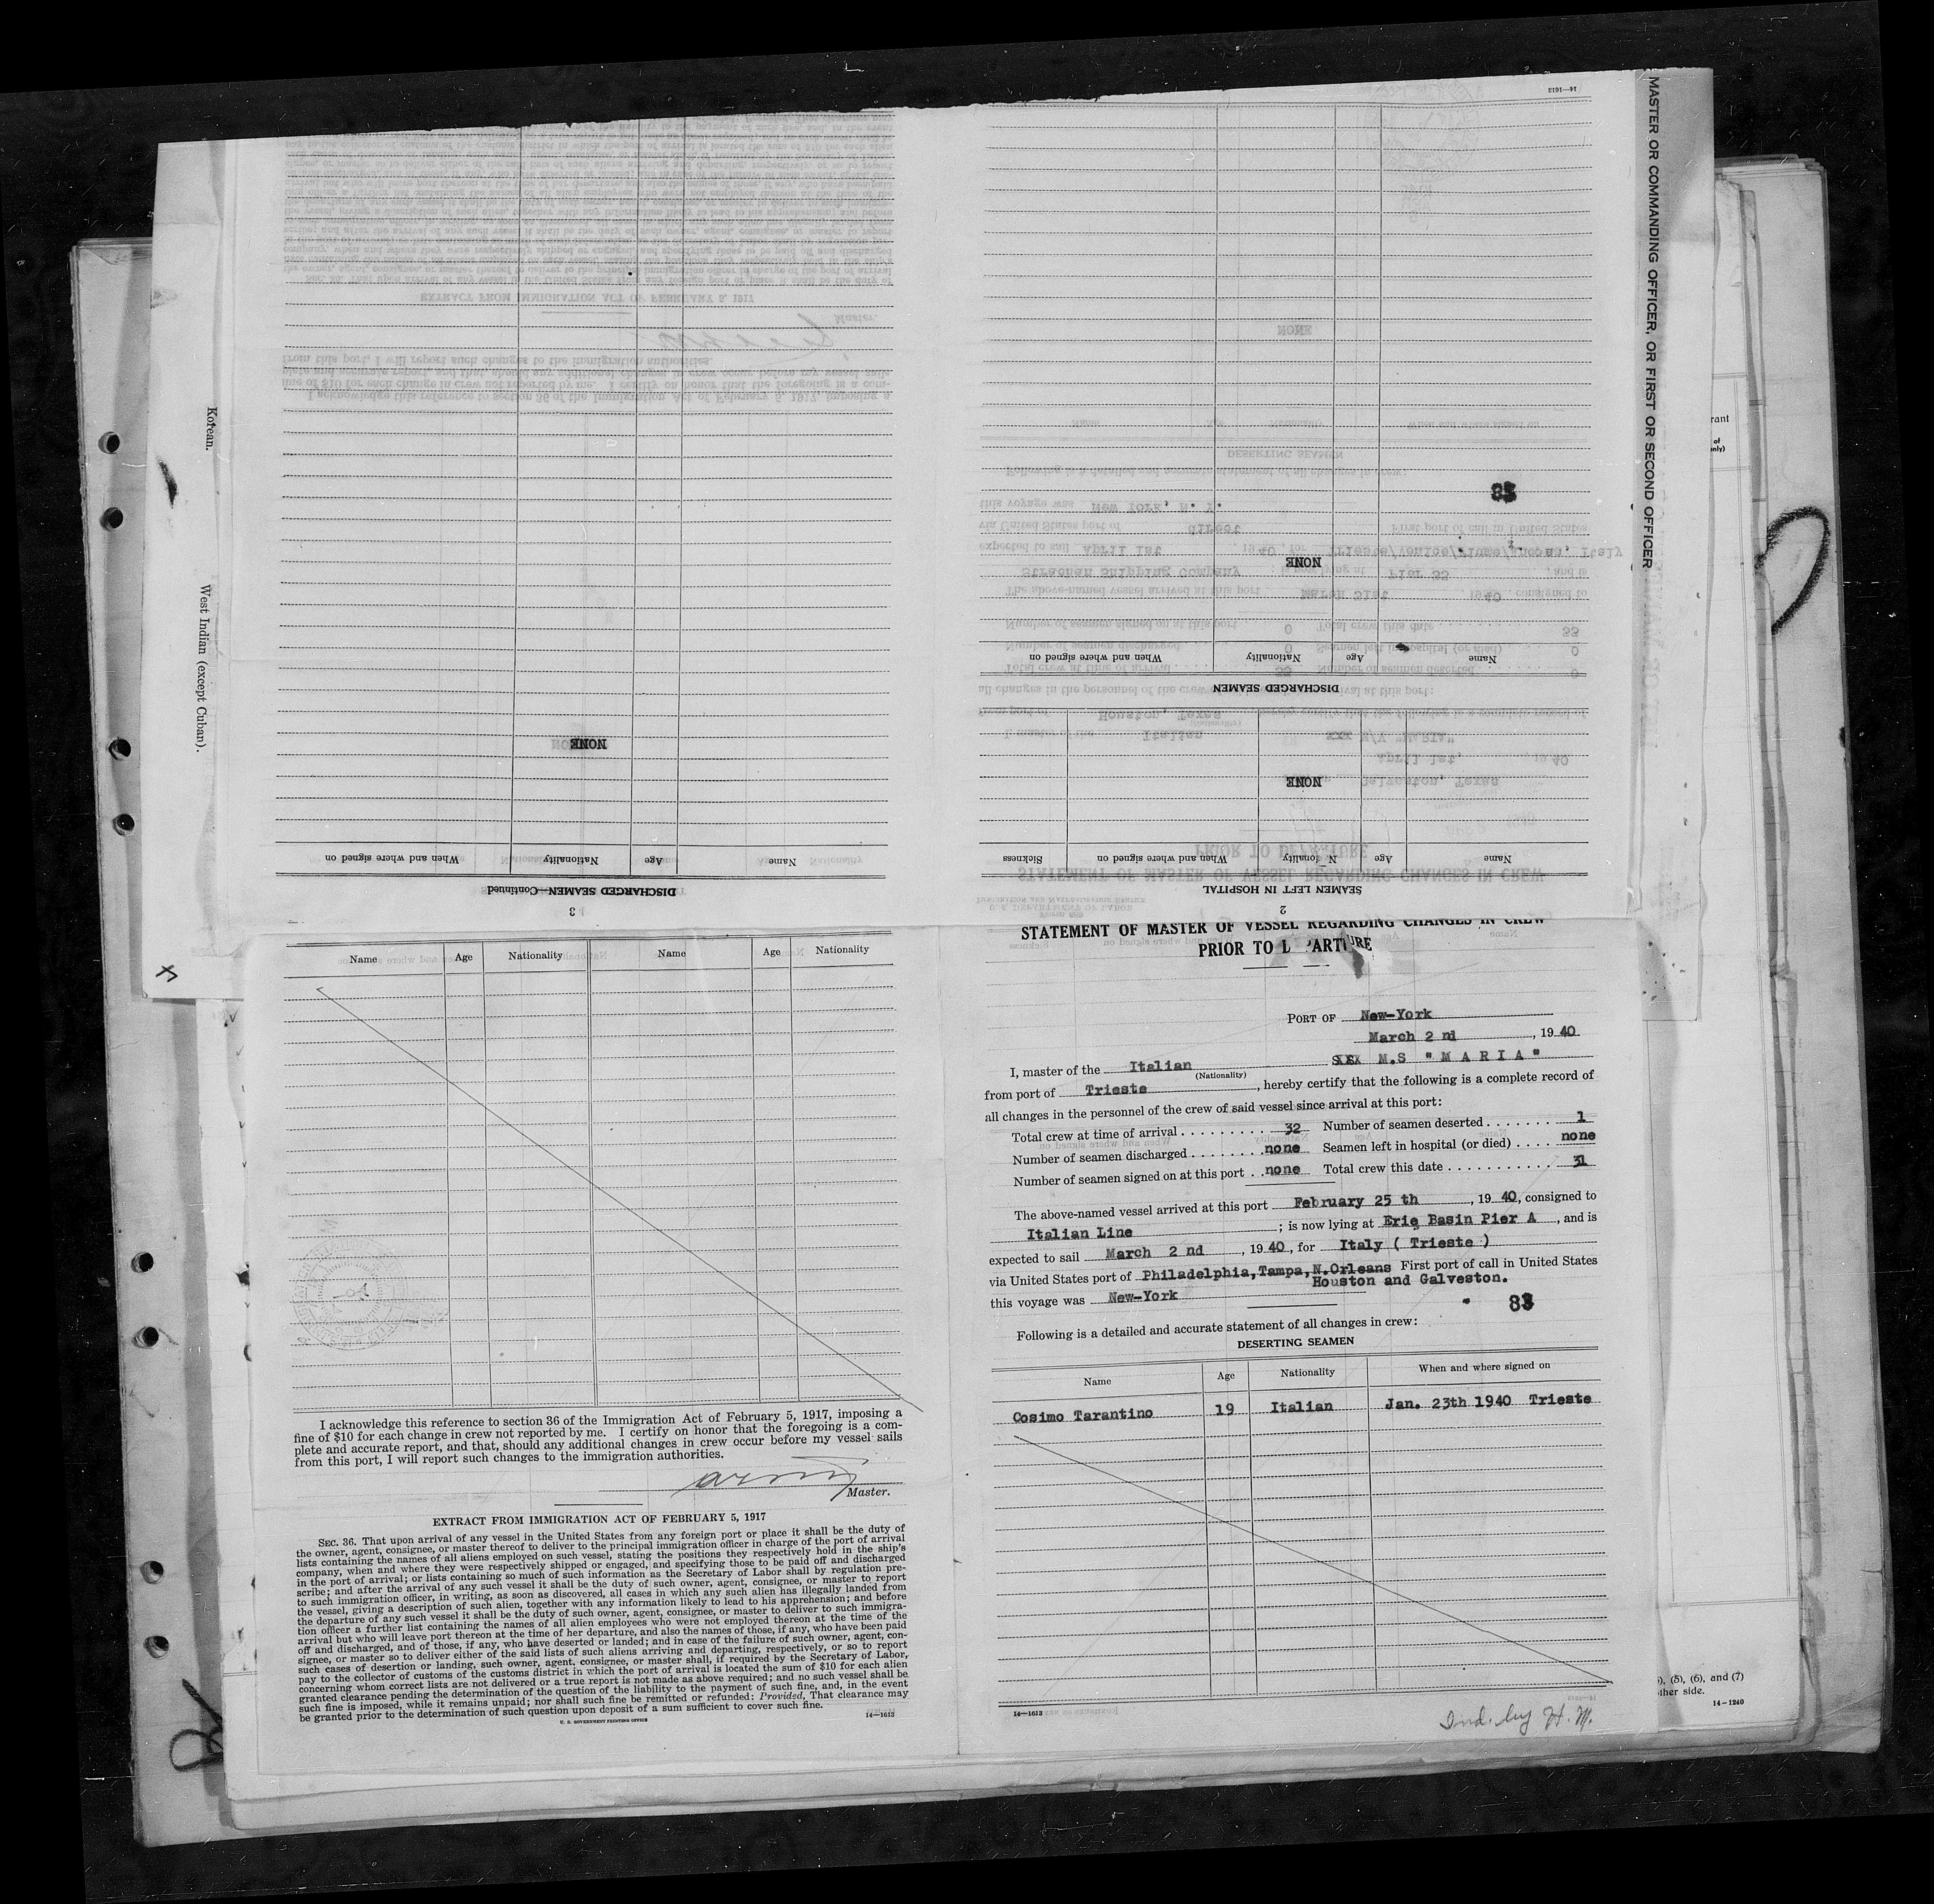 MASTER OR COMMANDING OFFICER, OR FIRST OR SECOND OFFICER
Korean.
West Indian (except Cuban).
14—1613
Name Age Nationality When and where signed on
DISCHARGED SEAMEN
NONE
Name Age Nationality When and where signed on Sickness
SEAMEN LEFT IN HOSPITAL
NONE
2
83
Name Age Nationality When and where signed on
DISCHARGED SEAMEN—Continued
NONE
3
STATEMENT OF MASTER OF VESSEL REGARDING CHANGES IN CREW
PRIOR TO DEPARTURE
PORT OF New-York
March 2 nd , 19 40
I, master of the Italian M.S "M A R I A"
(Nationality)
from port of Trieste , hereby certify that the following is a complete record of
all changes in the personnel of the crew of said vessel since arrival at this port:
Total crew at time of arrival . . . . . . . . . . 32 Number of seamen deserted . . . . . . . 1
Number of seamen discharged . . . . . . . . none Seamen left in hospital (or died) . . . . none
Number of seamen signed on at this port . . none Total crew this date . . . . . . . . . . . . 31
The above-named vessel arrived at this port February 25 th , 19 40, consigned to
Italian Line ; is now lying at Erie Basin Pier A , and is
expected to sail March 2 nd , 19 40, for Italy ( Trieste )
via United States port of Philadelphia,Tampa,N.Orleans First port of call in United States
Houston and Galveston.
this voyage was New-York
83
Following is a detailed and accurate statement of all changes in crew:
DESERTING SEAMEN
Name Age Nationality When and where signed on
Cosimo Tarantino 19 Italian Jan. 23th 1940 Trieste
14—1613
Ind. by H. M.
Name Age Nationality Name Age Nationality
I acknowledge this reference to section 36 of the Immigration Act of February 5, 1917, imposing a
fine of $10 for each change in crew not reported by me. I certify on honor that the foregoing is a com-
plete and accurate report, and that, should any additional changes in crew occur before my vessel sails
from this port, I will report such changes to the immigration authorities.
Master.
EXTRACT FROM IMMIGRATION ACT OF FEBRUARY 5, 1917
SEC. 36. That upon arrival of any vessel in the United States from any foreign port or place it shall be the duty of
the owner, agent, consignee, or master thereof to deliver to the principal immigration officer in charge of the port of arrival
lists containing the names of all aliens employed on such vessel, stating the positions they respectively hold in the ship's
company, when and where they were respectively shipped or engaged, and specifying those to be paid off and discharged
in the port of arrival; or lists containing so much of such information as the Secretary of Labor shall by regulation pre-
scribe; and after the arrival of any such vessel it shall be the duty of such owner, agent, consignee, or master to report
to such immigration officer, in writing, as soon as discovered, all cases in which any such alien has illegally landed from
the vessel, giving a description of such alien, together with any information likely to lead to his apprehension; and before
the departure of any such vessel it shall be the duty of such owner, agent, consignee, or master to deliver to such immigra-
tion officer a further list containing the names of all alien employees who were not employed thereon at the time of the
arrival but who will leave port thereon at the time of her departure, and also the names of those, if any, who have been paid
off and discharged, and of those, if any, who have deserted or landed; and in case of the failure of such owner, agent, con-
signee, or master so to deliver either of the said lists of such aliens arriving and departing, respectively, or so to report
such cases of desertion or landing, such owner, agent, consignee, or master shall, if required by the Secretary of Labor,
pay to the collector of customs of the customs district in which the port of arrival is located the sum of $10 for each alien
concerning whom correct lists are not delivered or a true report is not made as above required; and no such vessel shall be
granted clearance pending the determination of the question of the liability to the payment of such fine, and, in the event
such fine is imposed, while it remains unpaid; nor shall such fine be remitted or refunded: Provided, That clearance may
be granted prior to the determination of such question upon deposit of a sum sufficient to cover such fine.
U. S. GOVERNMENT PRINTING OFFICE 14—1613
(5), (6), and (7)
other side.
14—1240